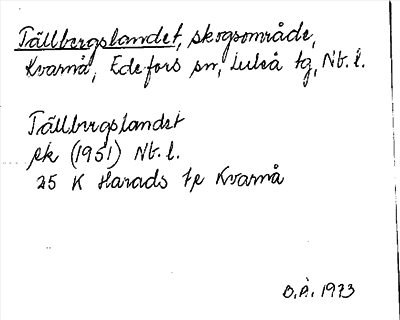 Tällbergslandet, skogsområde,
Kvarnå, Edefors sn, Luleå tg, Nb. l.
Tällbergslandet
ek (1951) Nb. l.
25 K Harads fr Kvarnå
O.P. 1973